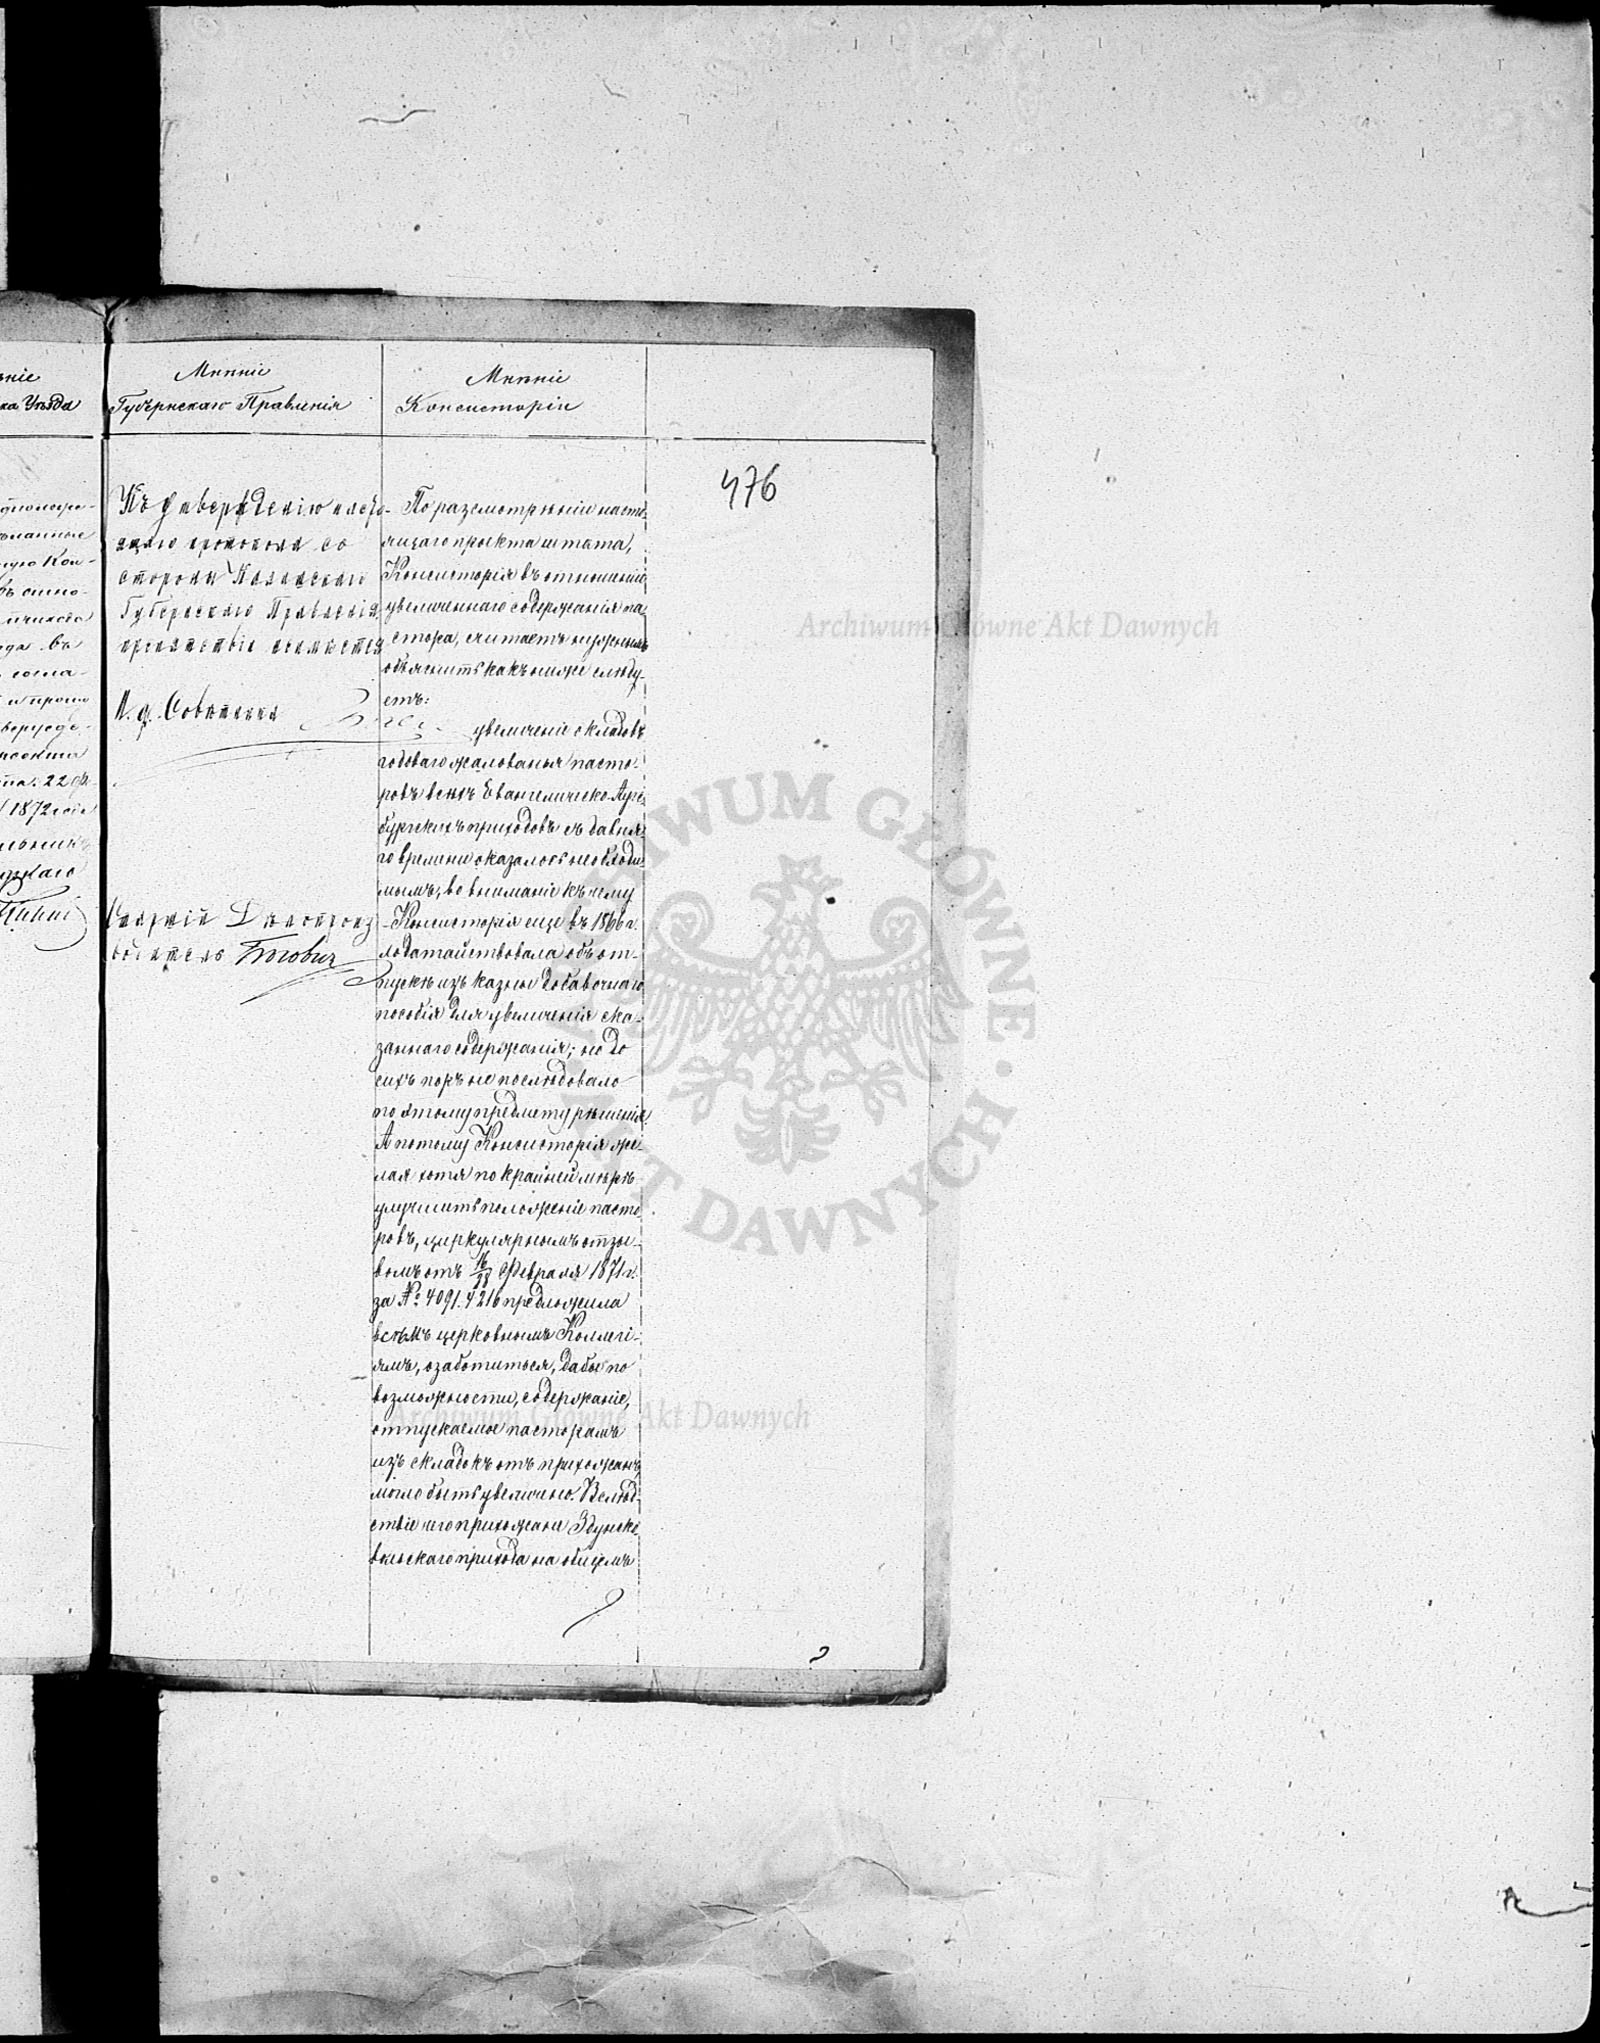 Мнѣніе
Губернскаго Правленія
Мнѣніе
Консисторіи
476
Къ утвержденію насто-
ящаго протокола со
стороны Калишскаго
Губернскаго Правленія
препятствія не имѣется
И. д. Совѣтника
Старшій Дѣлопроиз
водитель
По разсмотрѣніи насто-
ящаго проэкта штата,
Консисторія въ отношеніи
увеличеннаго содержанія па-
стора, считаетъ нужнымъ
объяснить какъ ниже слѣду-
етъ:
увеличеніе окладовъ
годоваго жалованья пасто-
ровъ всѣхъ Евангелическо-Аугс-
бургскихъ приходовъ съ давня-
го времени оказалось необходи-
мымъ, во вниманіе къ чему
Консисторія еще въ 1866 г.
ходатайствовала объ от-
пускѣ изъ казны добавочнаго
пособія для увеличенія ска-
заннаго содержанія; но до
сихъ поръ не послѣдовало
по этому предмету рѣшенія.
А потому Консисторія же-
лая хотя по крайней мѣрѣ
улучшить положеніе пасто-
ровъ, циркулярнымъ отзы-
вомъ отъ 16/28 Февраля 1871 г.
за № 4091.4216 предложила
всѣмъ церковнымъ Коллегі-
ямъ, озаботиться, дабы по
возможности, содержаніе,
отпускаемое пасторамъ
изъ складокъ отъ прихожанъ
могло быть увеличено. Вслѣд-
ствіе чего прихожане Здунско-
вольскаго прихода на общемъ
ніе
ка Уѣзда
22
1872 года
Archiwum Główne Akt Dawnych
ARCHIWUM GŁÓWNE · AKT DAWNYCH ·
Archiwum Główne Akt Dawnych